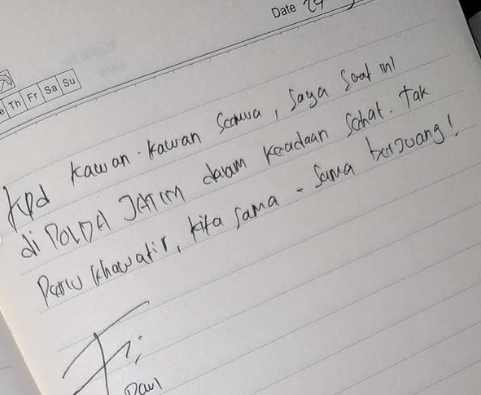 Date 24
Th Fr Sa Su
Kpd kawan-kawan semua, saya saat ini
di POLDA JATIM dalam keadaan sehat. tak
perlu khawatir, kita sama-sama berjuang!